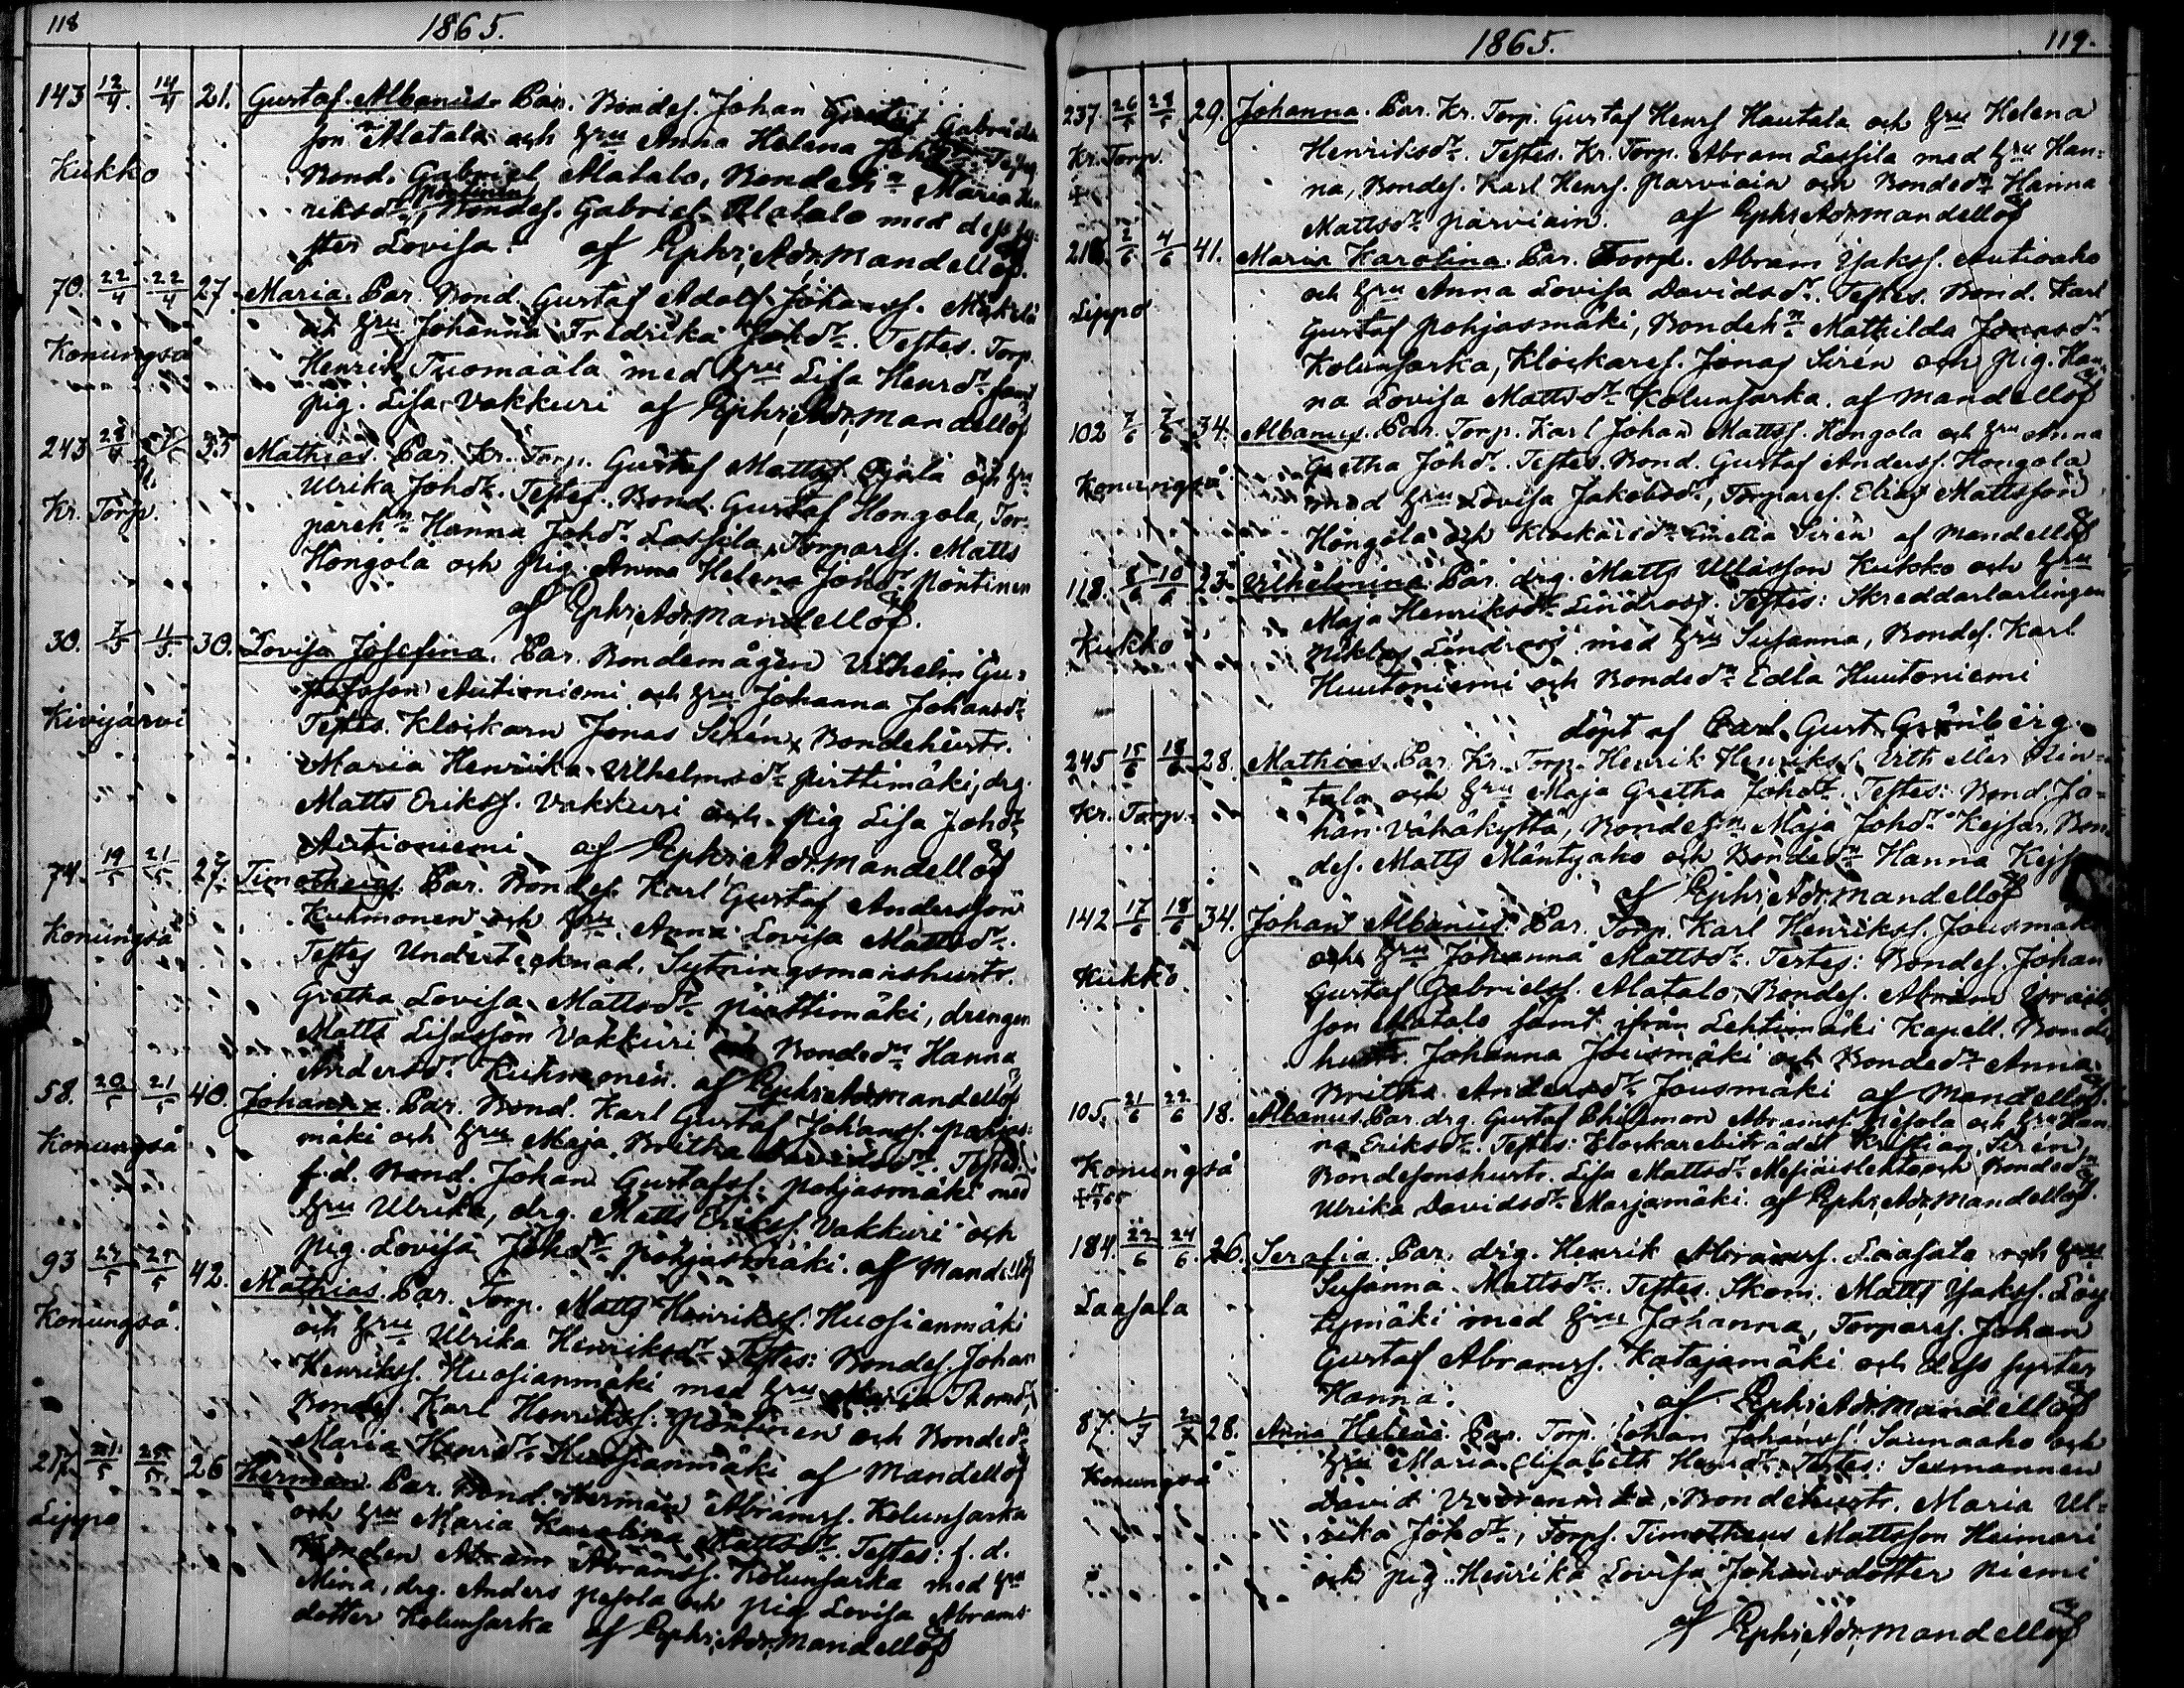 118
1865.
143 12/4 14/4 21. Gustaf Albanus. Par. Bondes. Johan Gabriels
son Alatalo och hru Anna Helena Johdr. Testes
Kukko
Bond. Gabriel Alatalo, Bondeh:n Maria Hen
riksdr, Bondes. Gabriel Alatalo med dess sy-
ster Lovisa. af Ephr. Adr. Mandellöf.
70. 22/4 22/4 27. Maria. Par. Bond. Gustaf Adolf Johanss. Mäkelä
och hru Johanna Fredrika Johdr. Testes. Torp.
Konungså
Henrik Tuomaala med hru Lisa Henrdr samt
pig. Lisa Vakkuri af Ephr. Adr. Mandellöf
243 28/4 35 Mathias. Par. Kr. Torp. Gustaf Mattss. Ojala och hru
Ulrika Johdr. Testes. Bond. Gustaf Hongola, Tor-
Kr. Torp.
pareh:n Hanna Johdr. Lassila, Torpares. Matts
Hongola och Pig. Anna Helena Johdr. Pöntinen
af Ephr. Adr. Mandellöf.
30. 7/5 14/5 30. Lovisa Josefina. Par. Bondemågen Vilhelm Gu-
stafsson Autioniemi och hru Johanna Johansdr
Kivijärvi
Testes. Klockarn Jonas Sirén, Bondehustr.
Maria Henrika Vilhelmsdr Pirttimäki, drg.
Matts Erikss. Vakkuri och Pig Lisa Johdr
Autioniemi af Ephr. Adr. Mandellöf
74. 19/5 21/5 27. Timotheus. Par. Bondes. Karl Gustaf Andersson
Kuhmonen och hru Anna Lovisa Mattsdr.
Konungså
Testes Undertecknad, Sytningsmanshustr.
Gretha Lovisa Mattsdr Pirttimäki, drengen
Matts Lisasson Vakkuri och Bondedr Hanna
Andersdr Kuhmonen. af Ephr. Adr. Mandellöf
58. 20/5 21/5 40. Johanna. Par. Bond. Karl Gustaf Johanss. Pohjas-
mäki och hru Maja Britha Davidsdr. Testes.
Konungså
f.d. Bond. Johan Gustafss. Pohjasmäki med
hru Ulrika, drg. Matts Erikss. Vakkuri och
Pig. Lovisa Johdr Pohjasmäki. af Mandellöf
93 25/5 42. Mathias. Par. Torp. Matts Henrikss. Huosianmäki
och hru Ulrika Henriksdr Testes: Bondes. Johan
Konungså.
Henrikss. Huosianmäki med hru Maria Thomsdr,
Bondes. Karl Henrikss. Pöntinen och Bondedr
Maria Henrdr Huosianmäki af Mandellöf
217. 25/5 26 Herman. Par. Bond. Herman Abramss. Kolunsarka
och hru Maria Karolina Mattsdr. Testes: f.d.
Lippo
Bonden Abram Abramss. Kolunsarka med hru
Mina, drg. Anders Pesola och pig Lovisa Abrams
dotter Kolunsarka af Ephr. Adr. Mandellöf
1865.
119.
237. 26/5 28/5 29. Johanna. Par. Kr. Torp. Gustaf Henrs Hautala och hru Helena
Kr. Torp.
Henriksdr. Testes. Kr. Torp. Abram Lassila med hru Han-
na, Bondes. Karl Henrs. Parviain och Bondedr Hanna
Mattsdr Parviain. af Ephr. Adr. Mandellöf
216. 2/6 4/6 41. Maria Karolina. Par. Torp. Abram Isakss. Autioaho
och hru Anna Lovisa Davidsdr. Testes. Bond. Karl
Lippo
Gustaf Pohjasmäki, Bondeh:n Mathilda Jonasdr
Kolunsarka, Klockares. Jonas Sirén och pig. Han-
na Lovisa Mattsdr Kolunsarka. af Mandellöf
102 7/6 7/6 34. Albanus. Par. Torp. Karl Johan Mattss. Hongola och hru Anna
Gretha Johdr. Testes. Bond. Gustaf Anderss. Hongola
Konungså
med hru Lovisa Jakobsdr, Torpares. Elias Mattsson
Hongola och Klockaredr Emelia Sirén af Mandellöf
118. 8/6 10/6 23. Vilhelmina Par. drg. Matts Ullasson Kukko och hru
Maja Henriksdr Lindroos. Testes: Skreddarlärlingen
Kukko
Niklas Lindroos med hru Susanna, Bondes. Karl
Huutoniemi och Bondedr Edla Huutoniemi
Döpt af Carl Gust. Grönberg.
245 15/6 18/6 28. Mathias Par. Kr. Torp. Henrik Henrikss. Vith eller Rin-
tala och hru Maja Gretha Johdr. Testes: Bond. Jo-
Kr. Torp.
han Vähäkyttä, Bondeh:n Maja Johdr Kejsar, Bon
des. Matts Mäntyaho och Bondedr Hanna Kejsar
af Ephr. Adr. Mandellöf
142 17/6 18/6 34. Johan Albanus. Par. Torp. Karl Henrikss. Jousmäki
och hru Johanna Mattsdr. Testes: Bondes. Johan
Kukko.
Gustaf Gabrielss. Alatalo, Bondes. Abram Israels
son Alatalo samt ifrån Lehtimäki Kapell. Bonde
hustr. Johanna Jousmäki och Bondedr Anna
Britha Andersdr Jousmäki af Mandellöf.
105. 21/6 22/6 18. Albanus. Par. drg. Gustaf Philemon Abramss. Pesola och hru Han
na Eriksdr. Testes: Klockarebiträdet Kristian Sirén,
Konungså
Bondesonshustr. Lisa Mattsdr Mesiäislehto och Bondedr
Ulrika Davidsdr Marjamäki. af Ephr. Adr. Mandellöf.
184. 22/6 24/6 26. Serafia. Par. drg. Henrik Abramss. Laasala och hru
Susanna Mattsdr. Testes. Skom. Matts Isakss. Löy
Laasala
tymäki med hru Johanna, Torpares. Johan
Gustaf Abramss. Katajamäki och dess syster
Hanna. af Ephr. Adr. Mandellöf
87. 1/7 2/7 28. Anna Helena. Par. Torp. Johan Johanss. Saunaaho och
hru Maria Elisabeth Henrdr. Testes: Sexmannen
Konungså
David Vuorenmaa, Bondehustr. Maria Ul-
rika Johdr, Torps. Timotheus Mattsson Heimari
och pig. Henrika Lovisa Johansdotter Niemi
af Ephr. Adr. Mandellöf